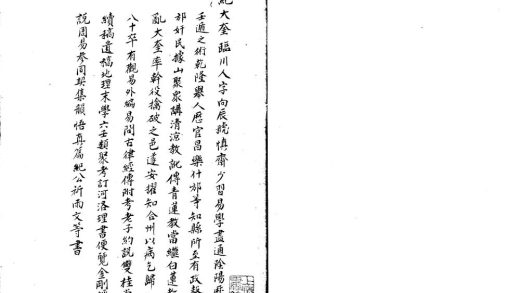 紀大奎臨川人字向辰號慎齋少習易學盡通陰陽
壬遁之術乾隆舉人歷官昌樂什邡等知縣所至有政聲
邡奸民據山聚眾講清涼教訛傳青蓮教當繼白蓮教
亂大奎率幹役擒破之邑遂安擢知合州以病乞歸
八十卒有觀易外編易問古律經傳附考老子約說雙桂堂
續稿遺稿地理末學六壬類聚考訂河洛理書便覽金剛
說周易參同契集韻悟真篇紀公祈雨文等書